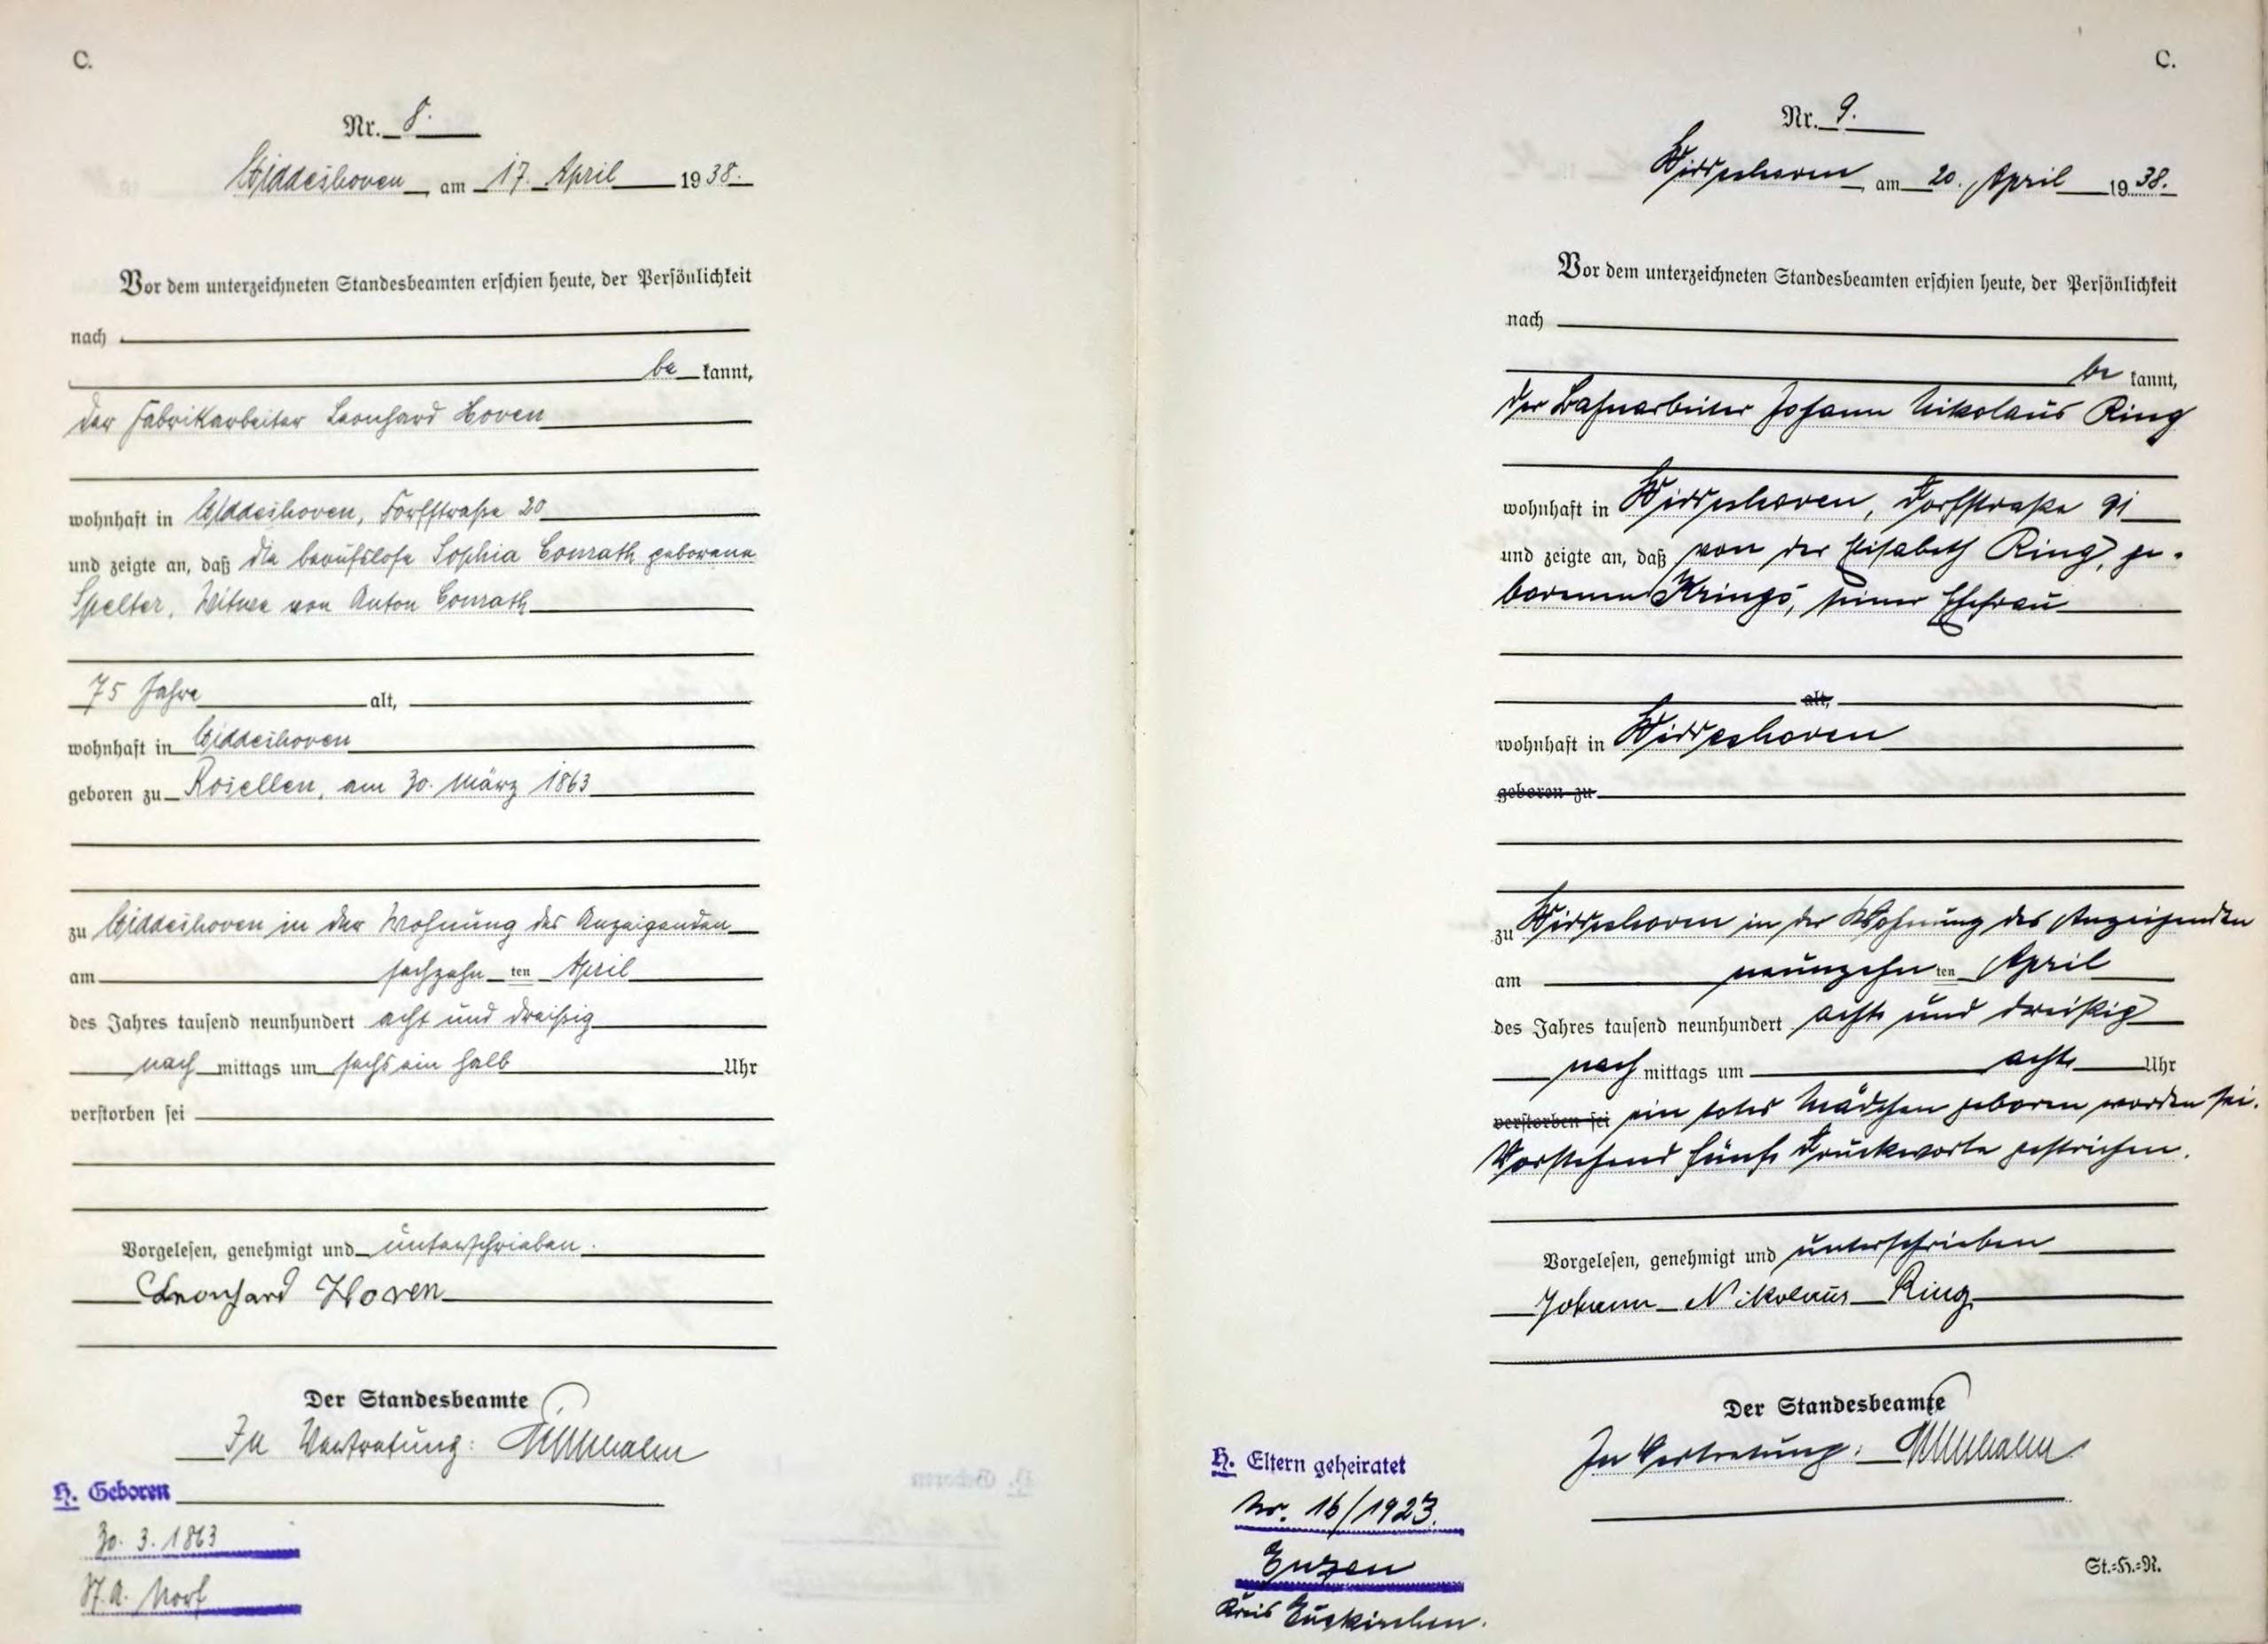 C.
Nr. 8.
Widdeshoven, am 17. April 1938.
Vor dem unterzeichneten Standesbeamten erschien heute, der Persönlichkeit
nach
be kannt,
der Fabrikarbeiter Leonhard Hoven
wohnhaft in Widdeshoven, Dorfstraße 20
und zeigte an, daß die berufslose Sophia Conrath geborene
Spelter, Witwe von Anton Conrath
75 Jahre alt,
wohnhaft in Widdeshoven
geboren zu Rosellen, am 30. März 1863
zu Widdeshoven in der Wohnung des Anzeigenden
am sechzehn ten April
des Jahres tausend neunhundert acht und dreißig
nach mittags um sechs ein halb Uhr
verstorben sei
Vorgelesen, genehmigt und unterschrieben.
Leonhard Hoven
Der Standesbeamte
In Vertretung:
H. Geboren
30. 3. 1863
St. A. Norf
C.
Nr. 9.
Widdeshoven, am 20. April 1938.
Vor dem unterzeichneten Standesbeamten erschien heute, der Persönlichkeit
nach
be kannt,
der Bahnarbeiter Johann Nikolaus Ring
wohnhaft in Widdeshoven, Dorfstraße 91
und zeigte an, daß von der Elisabeth Ring, ge-
borenen Krings, seiner Ehefrau
alt,
wohnhaft in Widdeshoven
geboren zu
zu Widdeshoven in der Wohnung des Anzeigenden
am neunzehn ten April
des Jahres tausend neunhundert acht und dreißig
nach mittags um acht Uhr
verstorben sei ein totes Mädchen geboren worden sei.
Vorstehend fünf Druckworte gestrichen.
Vorgelesen, genehmigt und unterschrieben
Johann Nikolaus Ring
Der Standesbeamte
In Vertretung:
H. Eltern geheiratet
Nr. 16/1923.
Enzen
Kreis Euskirchen.
St.=H.=R.